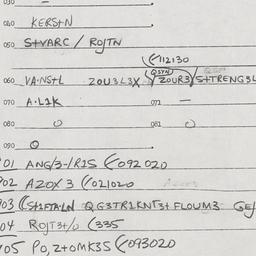 030 —
040 KERS+N
050 S+VARC / ROJTN
(112130
QSYN
060 VA·NS+L ZOU3L3X ZOUR3 S+TRENG3L
070 A·L1K 071 —
080 0 081 0
090 0
01 ANG/3-/R1S (092020
02 AZOX 3 (021020
03 ((S+1FTA·LN QG3TR1KNT3+ FLOUM3
04 ROJT3+/0 (335
05 PO,Z+OMK3S (093020